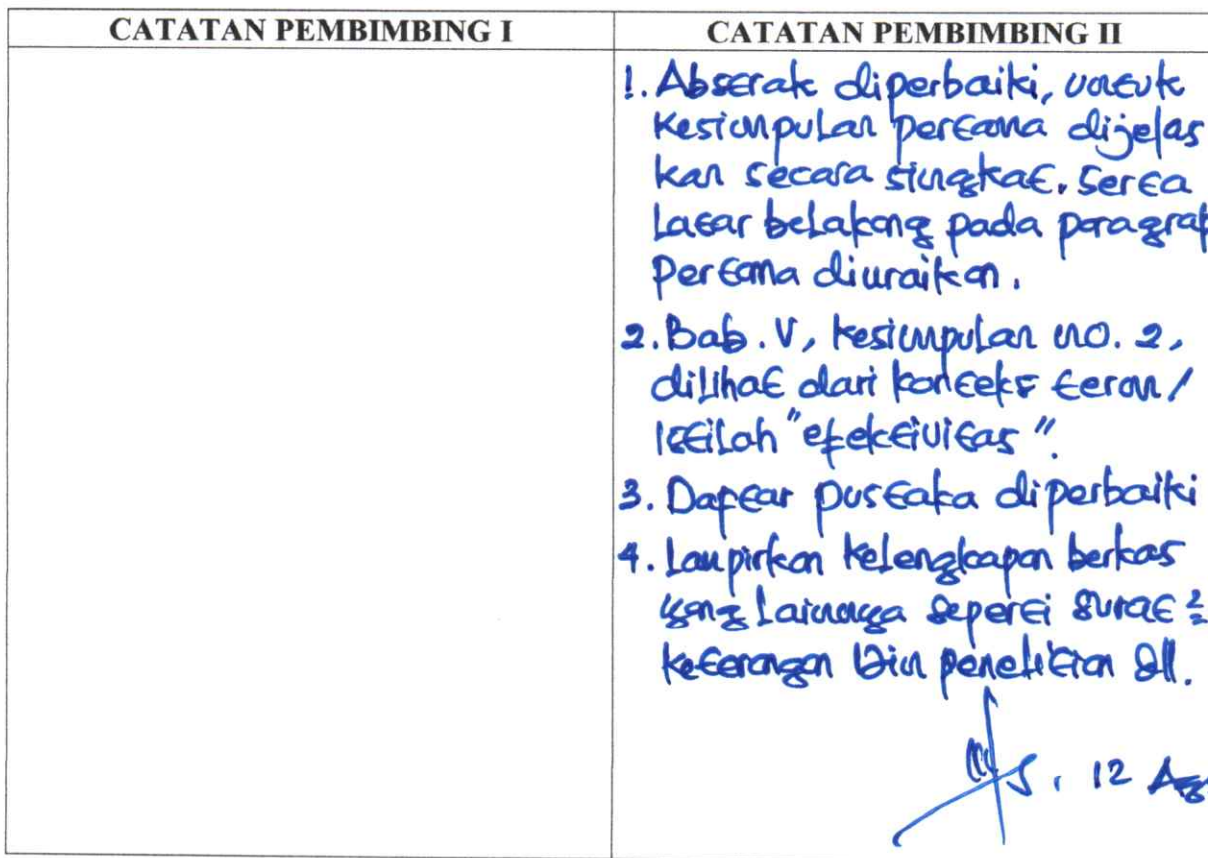 CATATAN PEMBIMBING I
CATATAN PEMBIMBING II
1. Abstrak diperbaiki, untuk
Kesimpulan pertama dijelas
kan secara singkat. Serta
Latar belakang pada paragraf
Pertama diuraikan.
2. Bab. V, Kesimpulan no. 2,
dilihat dari konteks term /
Istilah "efektivitas".
3. Daftar pustaka diperbaiki
4. Lampirkan Kelengkapan berkas
yang Lainnya seperti Surat ²
keterangan Izin penelitian dll.
12